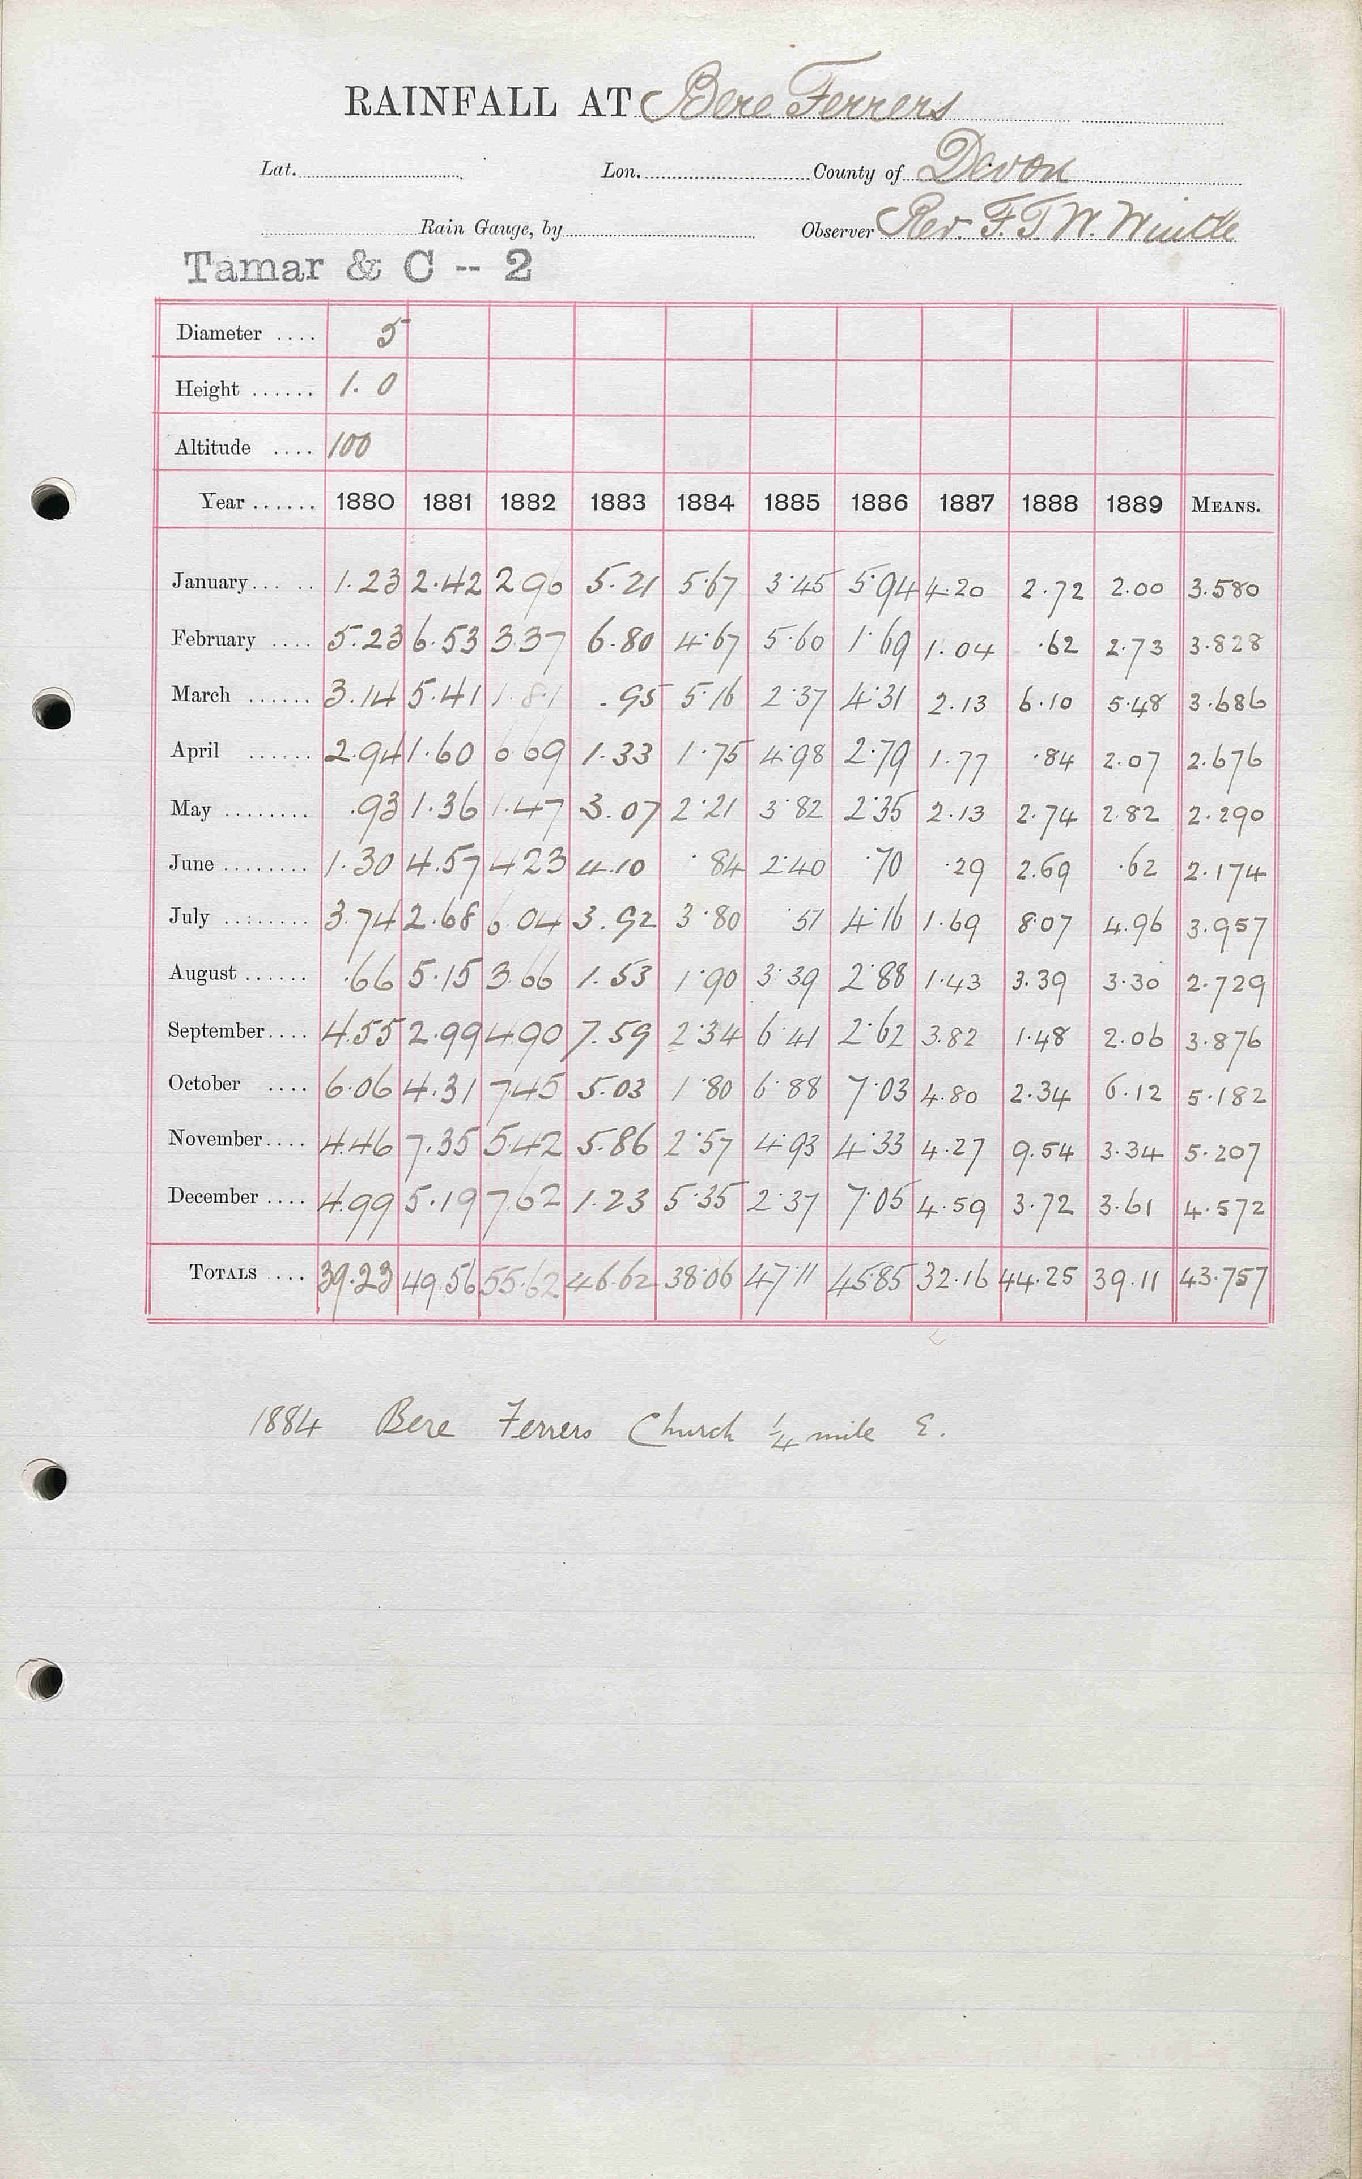 RAINFALL AT Bere Ferrers
Lat. Lon. County of Devon
Rain Gauge, by Observer Rev. F. T. W. Wintle
Tamar & C -- 2
Diameter .... 5
Height ...... 1. 0
Altitude .... 100
Year ...... 1880 1881 1882 1883 1884 1885 1886 1887 1888 1889 MEANS.
January... .. 1.23 2.42 2 90 5.21 5.67 3.45 5.94 4.20 2.72 2.00 3.580
February .... 5.23 6.53 3.37 6.80 4.67 5.60 1.69 1.04 .62 2.73 3.828
March ...... 3.14 5.41 1.81 .95 5.16 2.37 4.31 2.13 6.10 5.48 3.686
April ...... 2.94 1.60 6 69 1.33 1.75 4.98 2.79 1.77 .84 2.07 2.676
May ........ .93 1.36 1.47 3.07 2.21 3.82 2.35 2.13 2.74 2.82 2.290
June ........ 1.30 4.57 4 23 4.10 .84 2.40 .70 .29 2.69 .62 2.174
July ........ 3.74 2.68 6.04 3.92 3.80 .51 4.16 1.69 8.07 4.96 3.957
August ...... .66 5.15 3.66 1.53 1.90 3.39 2.88 1.43 3.39 3.30 2.729
September.... 4.55 2.99 4.90 7.59 2.34 6.41 2.62 3.82 1.48 2.06 3.876
October .... 6.06 4.31 7.45 5.03 1.80 6.88 7.03 4.80 2.34 6.12 5.182
November.... 4.46 7.35 5.42 5.86 2.57 4.93 4.33 4.27 9.54 3.34 5.207
December .... 4.99 5.19 7.62 1.23 5.35 2.37 7.05 4.59 3.72 3.61 4.572
TOTALS .... 39.23 49.56 55.62 46.62 38.06 47.11 45.85 32.16 44.25 39.11 43.757
1884 Bere Ferrers Church 1/4 mile E.